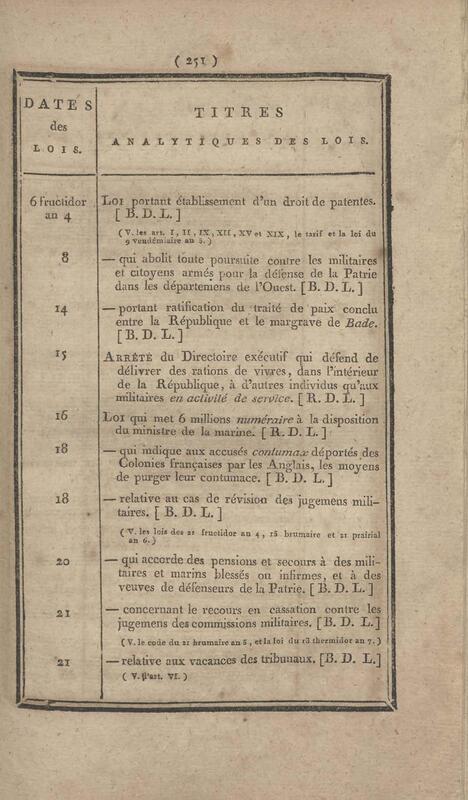 ( 251 )
DATES
des
LOIS.
TITRES
ANALYTIQUES DES LOIS.
6 fructidor
an 4
LOI portant établissement d'un droit de patentes.
[ B. D. L. ]
( V. les art. I, II, IX, XII, XV et XIX, le tarif et la loi du
9 vendémiaire an 5. )
8
— qui abolit toute poursuite contre les militaires
et citoyens armés pour la défense de la Patrie
dans les départemens de l'Ouest. [ B. D. L. ]
14
— portant ratification du traité de paix conclu
entre la République et le margrave de Bade.
[ B. D. L. ]
15
ARRÊTÉ du Directoire exécutif qui défend de
délivrer des rations de vivres, dans l'intérieur
de la République, à d'autres individus qu'aux
militaires en activité de service. [ R. D. L. ]
16
LOI qui met 6 millions numéraire à la disposition
du ministre de la marine. [ R. D. L. ]
18
— qui indique aux accusés contumax déportés des
Colonies françaises par les Anglais, les moyens
de purger leur contumace. [ B. D. L. ]
18
— relative au cas de révision des jugemens mili-
taires. [ B. D. L. ]
( V. les lois des 21 fructidor an 4, 15 brumaire et 21 prairial
an 6. )
20
— qui accorde des pensions et secours à des mili-
taires et marins blessés ou infirmes, et à des
veuves de défenseurs de la Patrie. [ B. D. L. ]
21
— concernant le recours en cassation contre les
jugemens des commissions militaires. [ B. D. L. ]
( V. le code du 21 brumaire an 5, et la loi du 18 thermidor an 7. )
21
— relative aux vacances des tribunaux. [B. D. L.]
( V. l'art. VI. )